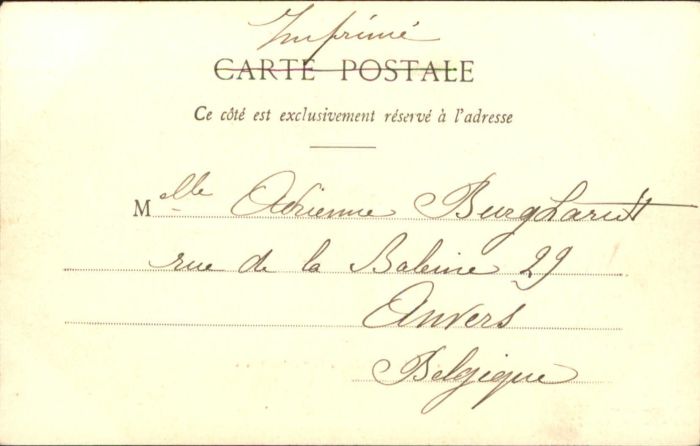 Imprimé
CARTE POSTALE
Ce côté est exclusivement réservé à l'adresse
Melle Adrienne Burghardt
rue de la Baleine 29
Anvers
Belgique